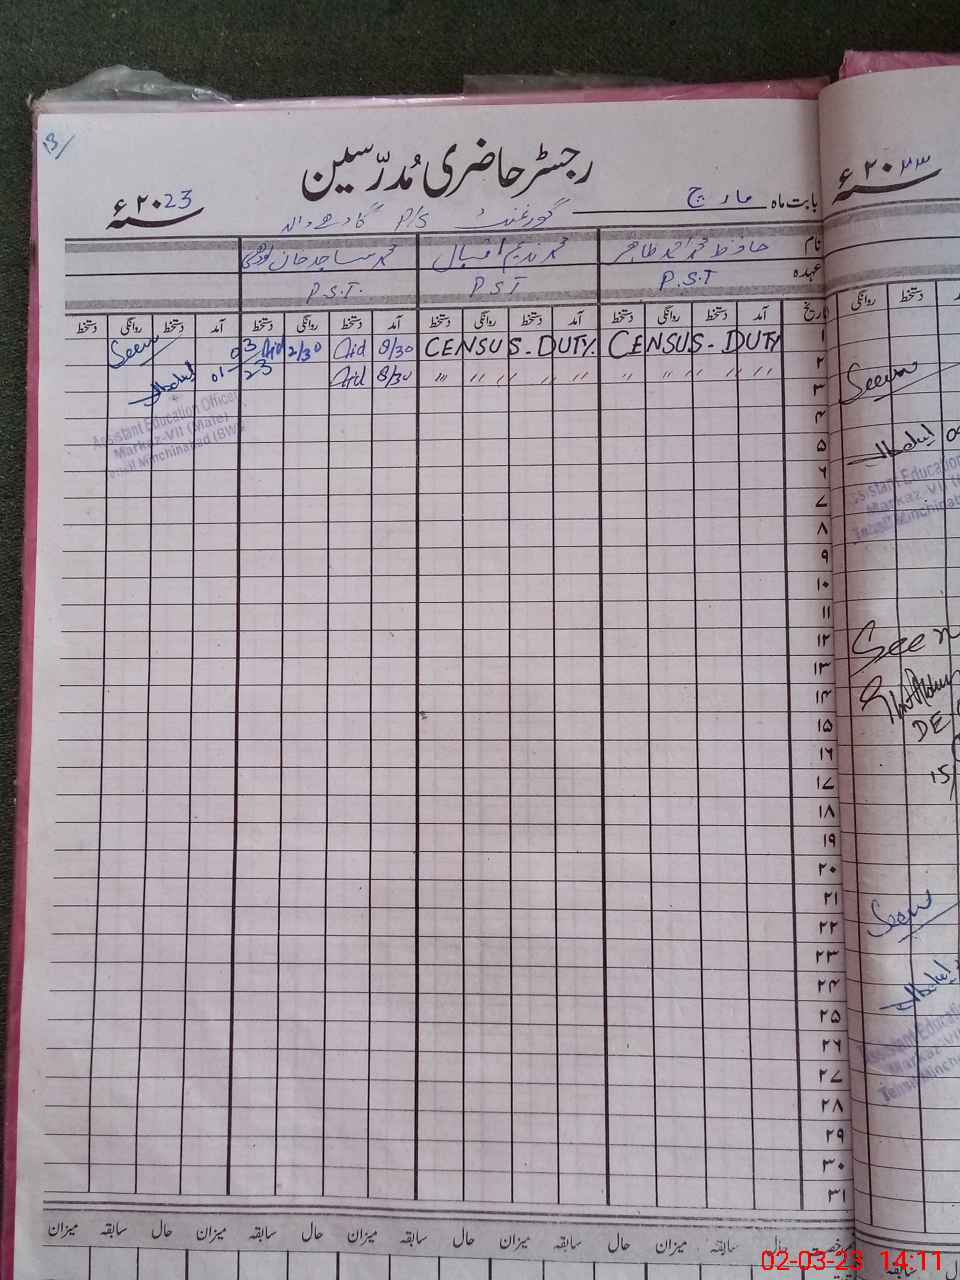 13/
رجسٹر حاضری مُدرّسین
بابت ماہ مارچ
سنہ ۲۰23ء
گورنمنٹ P/S
نام حافظ محمد احمد طاہر محمد ندیم اقبال محمد ساجد خان
عہدہ P.S.T P.S.T P.S.T.
تاریخ آمد دستخط روانگی دستخط آمد دستخط روانگی دستخط آمد دستخط روانگی دستخط آمد دستخط روانگی دستخط
۱ CENSUS. DUTY CENSUS. DUTY. 8/30 2/30 Seen
۲ 〃 〃 〃 〃 〃 〃 〃 〃 〃 〃 8/30 01-03-23
۳
۴
۵
۶
۷
۸
۹
۱۰
۱۱
۱۲
۱۳
۱۴
۱۵
۱۶
۱۷
۱۸
۱۹
۲۰
۲۱
۲۲
۲۳
۲۴
۲۵
۲۶
۲۷
۲۸
۲۹
۳۰
۳۱
Assistant Education Officer
Markaz-VII (Male)
Tehsil Minchinabad (BWN)
حال سابقہ میزان حال سابقہ میزان حال سابقہ میزان حال سابقہ میزان
سنہ ۲۰۲۳ء
دستخط روانگی
Seen
Assistant Education
Markaz-VII
Tehsil Minchinabad
Seen
DE
15/
Seen
Assistant Education
Markaz-VII
Tehsil Minchinabad
حال سابقہ
02-03-23 14:11